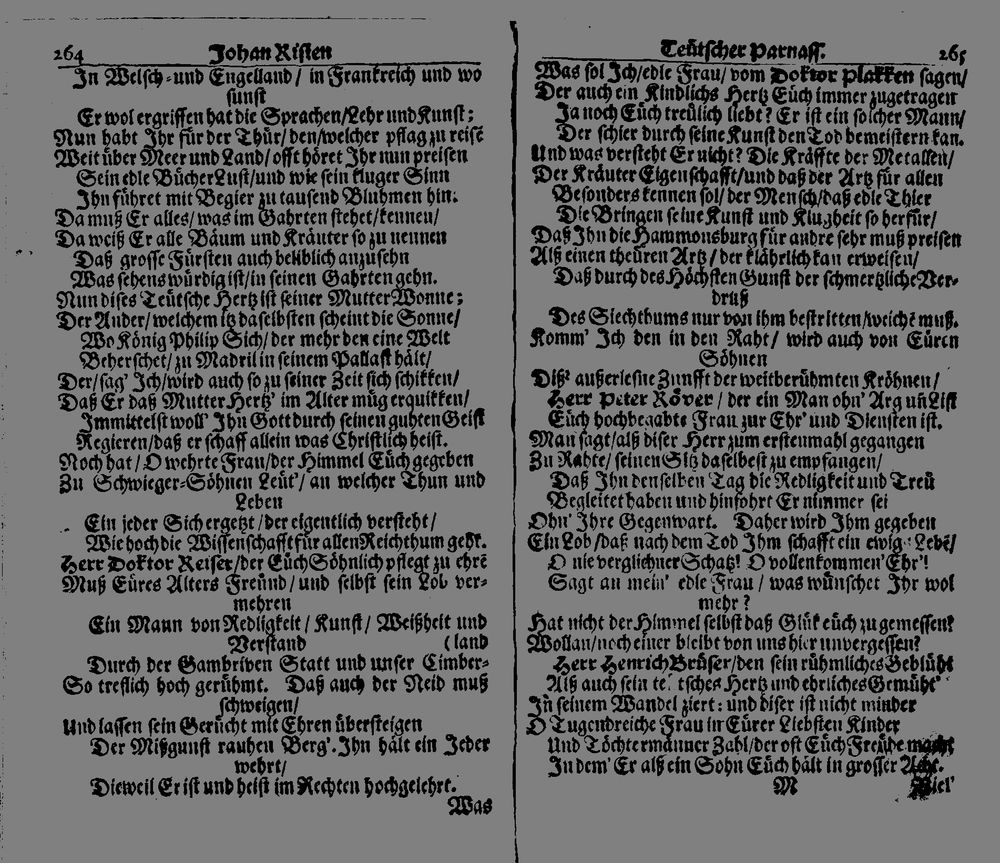 264 Johan Risten
In Welsch-und Engelland/ in Frankreich und wo
sunst
Er wol ergriffen hat die Sprachen/Lehr und Kunst;
Nun habt Ihr für der Thür/den/welcher pflag zu reisē
Weit über Meer und Land/offt höret Ihr nun preisen
Sein edle Bücher Lust/und wie sein kluger Sinn
Ihn führet mit Begier zu tausend Bluhmen hin.
Da muß Er alles/was im Gahrten stehet/kennen/
Da weiß Er alle Bäum und Kräuter so zu nennen
Daß grosse Fürsten auch beliblich anzusehn
Was sehens würdig ist/in seinen Gahrten gehn.
Nun dises Teütsche Hertz ist seiner Mutter Wonne;
Der Ander/welchem itz daselbsten scheint die Sonne/
Wo König Philip Sich/der mehr den eine Welt
Beherschet/zu Madril in seinem Pallast hält/
Der/sag' Ich/wird auch so zu seiner Zeit sich schikken/
Daß Er daß Mutter Hertz' im Alter müg erquikken/
Immittelst woll' Ihn Gott durch seinen guhten Geist
Regieren/daß er schaff allein was Christlich heist.
Noch hat/O wehrte Frau/der Himmel Eüch gegeben
Zu Schwieger-Söhnen Leüt'/an welcher Thun und
Leben
Ein jeder Sich ergetzt/der eigentlich versteht/
Wie hoch die Wissenschafft für allen Reichthum geht.
Herr Doktor Reiser/der Eüch Söhnlich pflegt zu ehrē
Muß Eüres Alters Freünd/und selbst sein Lob ver-
mehren
Ein Mann von Redligkeit/Kunst/Weißheit und
Verstand (land
Durch der Gambriven Statt und unser Cimber-
So treflich hoch gerühmt. Daß auch der Neid muß
schweigen/
Und lassen sein Gerücht mit Ehren übersteigen
Der Mißgunst rauhen Berg'. Ihn hält ein Jeder
wehrt/
Dieweil Er ist und heist im Rechten hochgelehrt.
Was
Teütscher Parnass. 265
Was sol Ich/edle Frau/vom Doktor Plakken sagen/
Der auch ein Kindlichs Hertz Eüch immer zugetragen
Ja noch Eüch treülich liebt? Er ist ein solcher Mann/
Der schier durch seine Kunst den Tod bemeistern kan.
Und was versteht Er nicht? Die Kräffte der Metallen/
Der Kräuter Eigenschafft/und daß der Artz für allen
Besonders kennen sol/der Mensch/daß edle Thier
Die Bringen seine Kunst und Klugheit so herfür/
Daß Ihn die Hammonsburg für andre sehr muß preisen
Alß einen theüren Artz/der klährlich kan erweisen/
Daß durch des Höchsten Gunst der schmertzliche Ver-
druß
Des Siechthums nur von ihm bestritten/weichē muß.
Komm' Ich den in den Raht/wird auch von Eüren
Söhnen
Diß' außerlesne Zunfft der weitberühmten Kröhnen/
Herr Peter Röver/der ein Man ohn' Arg uñ List
Eüch hochbegabte Frau zur Ehr' und Diensten ist.
Man sagt/alß diser Herr zum erstenmahl gegangen
Zu Rahte/seinen Sitz daselbest zu empfangen/
Daß Ihn denselben Tag die Redligkeit und Treü
Begleitet haben und hinfohrt Er nimmer sei
Ohn' Ihre Gegenwart. Daher wird Ihm gegeben
Ein Lob/daß nach dem Tod Ihm schafft ein ewigs Lebē/
O nie verglichner Schatz! O vollenkommen' Ehr'!
Sagt an mein' edle Frau/was wünschet Ihr wol
mehr?
Hat nicht der Himmel selbst daß Glük eüch zugemessen?
Wollan/noch einer bleibt von uns hier unvergessen?
Herr Henrich Brüser/den sein rühmliches Geblüht
Alß auch sein teütsches Hertz und ehrliches Gemüht'
In seinem Wandel ziert: und diser ist nicht minder
O Tugendreiche Frau in Eürer Liebsten Kinder
Und Töchtermänner Zahl/der oft Eüch Freüde macht
In dem' Er alß ein Sohn Eüch hält in grosser Acht.
M Viel'